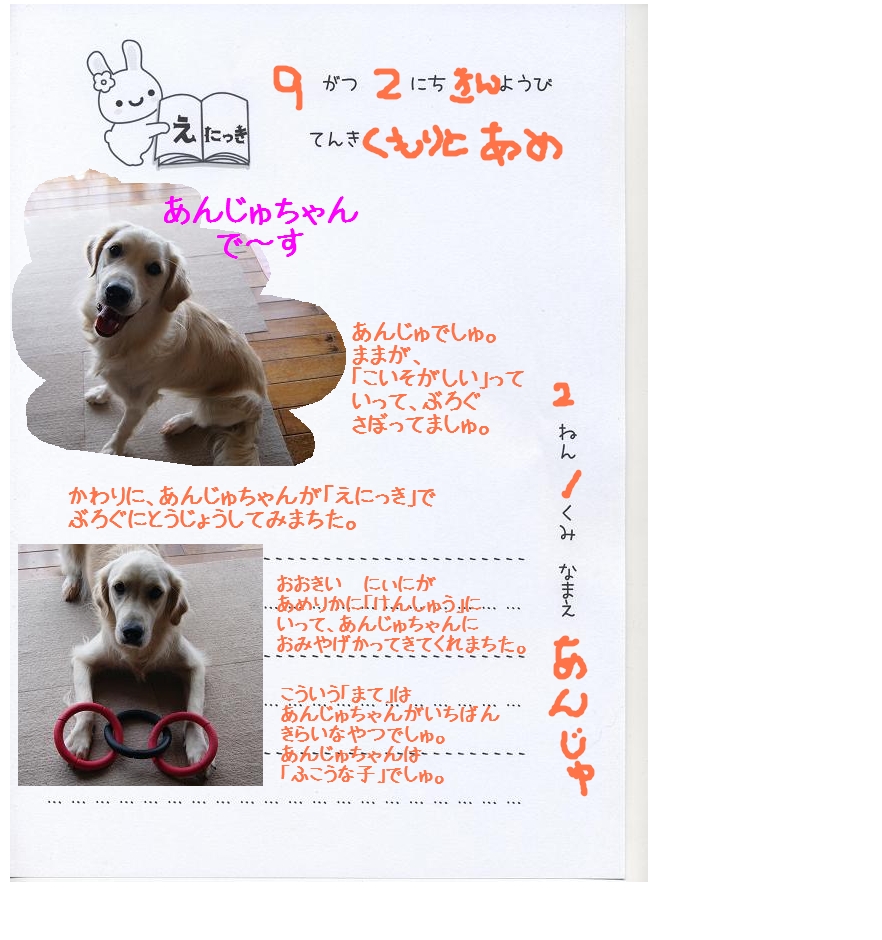 9 がつ 2 にち きんようび
てんき くもりと あめ
えにっき
あんじゅちゃん
で～す
あんじゅでしゅ。
ままが、
「こいそがしい」って
いって、ぶろぐ
さぼってましゅ。
2 ねん 1 くみ なまえ あんじゅ
かわりに、あんじゅちゃんが「えにっき」で
ぶろぐにとうじょうしてみまちた。
おおきい にぃにが
あめりかに「けんしゅう」に
いって、あんじゅちゃんに
おみやげかってきてくれまちた。
こういう「まて」は
あんじゅちゃんがいちばん
きらいなやつでしゅ。
あんじゅちゃんは
「ふこうな子」でしゅ。